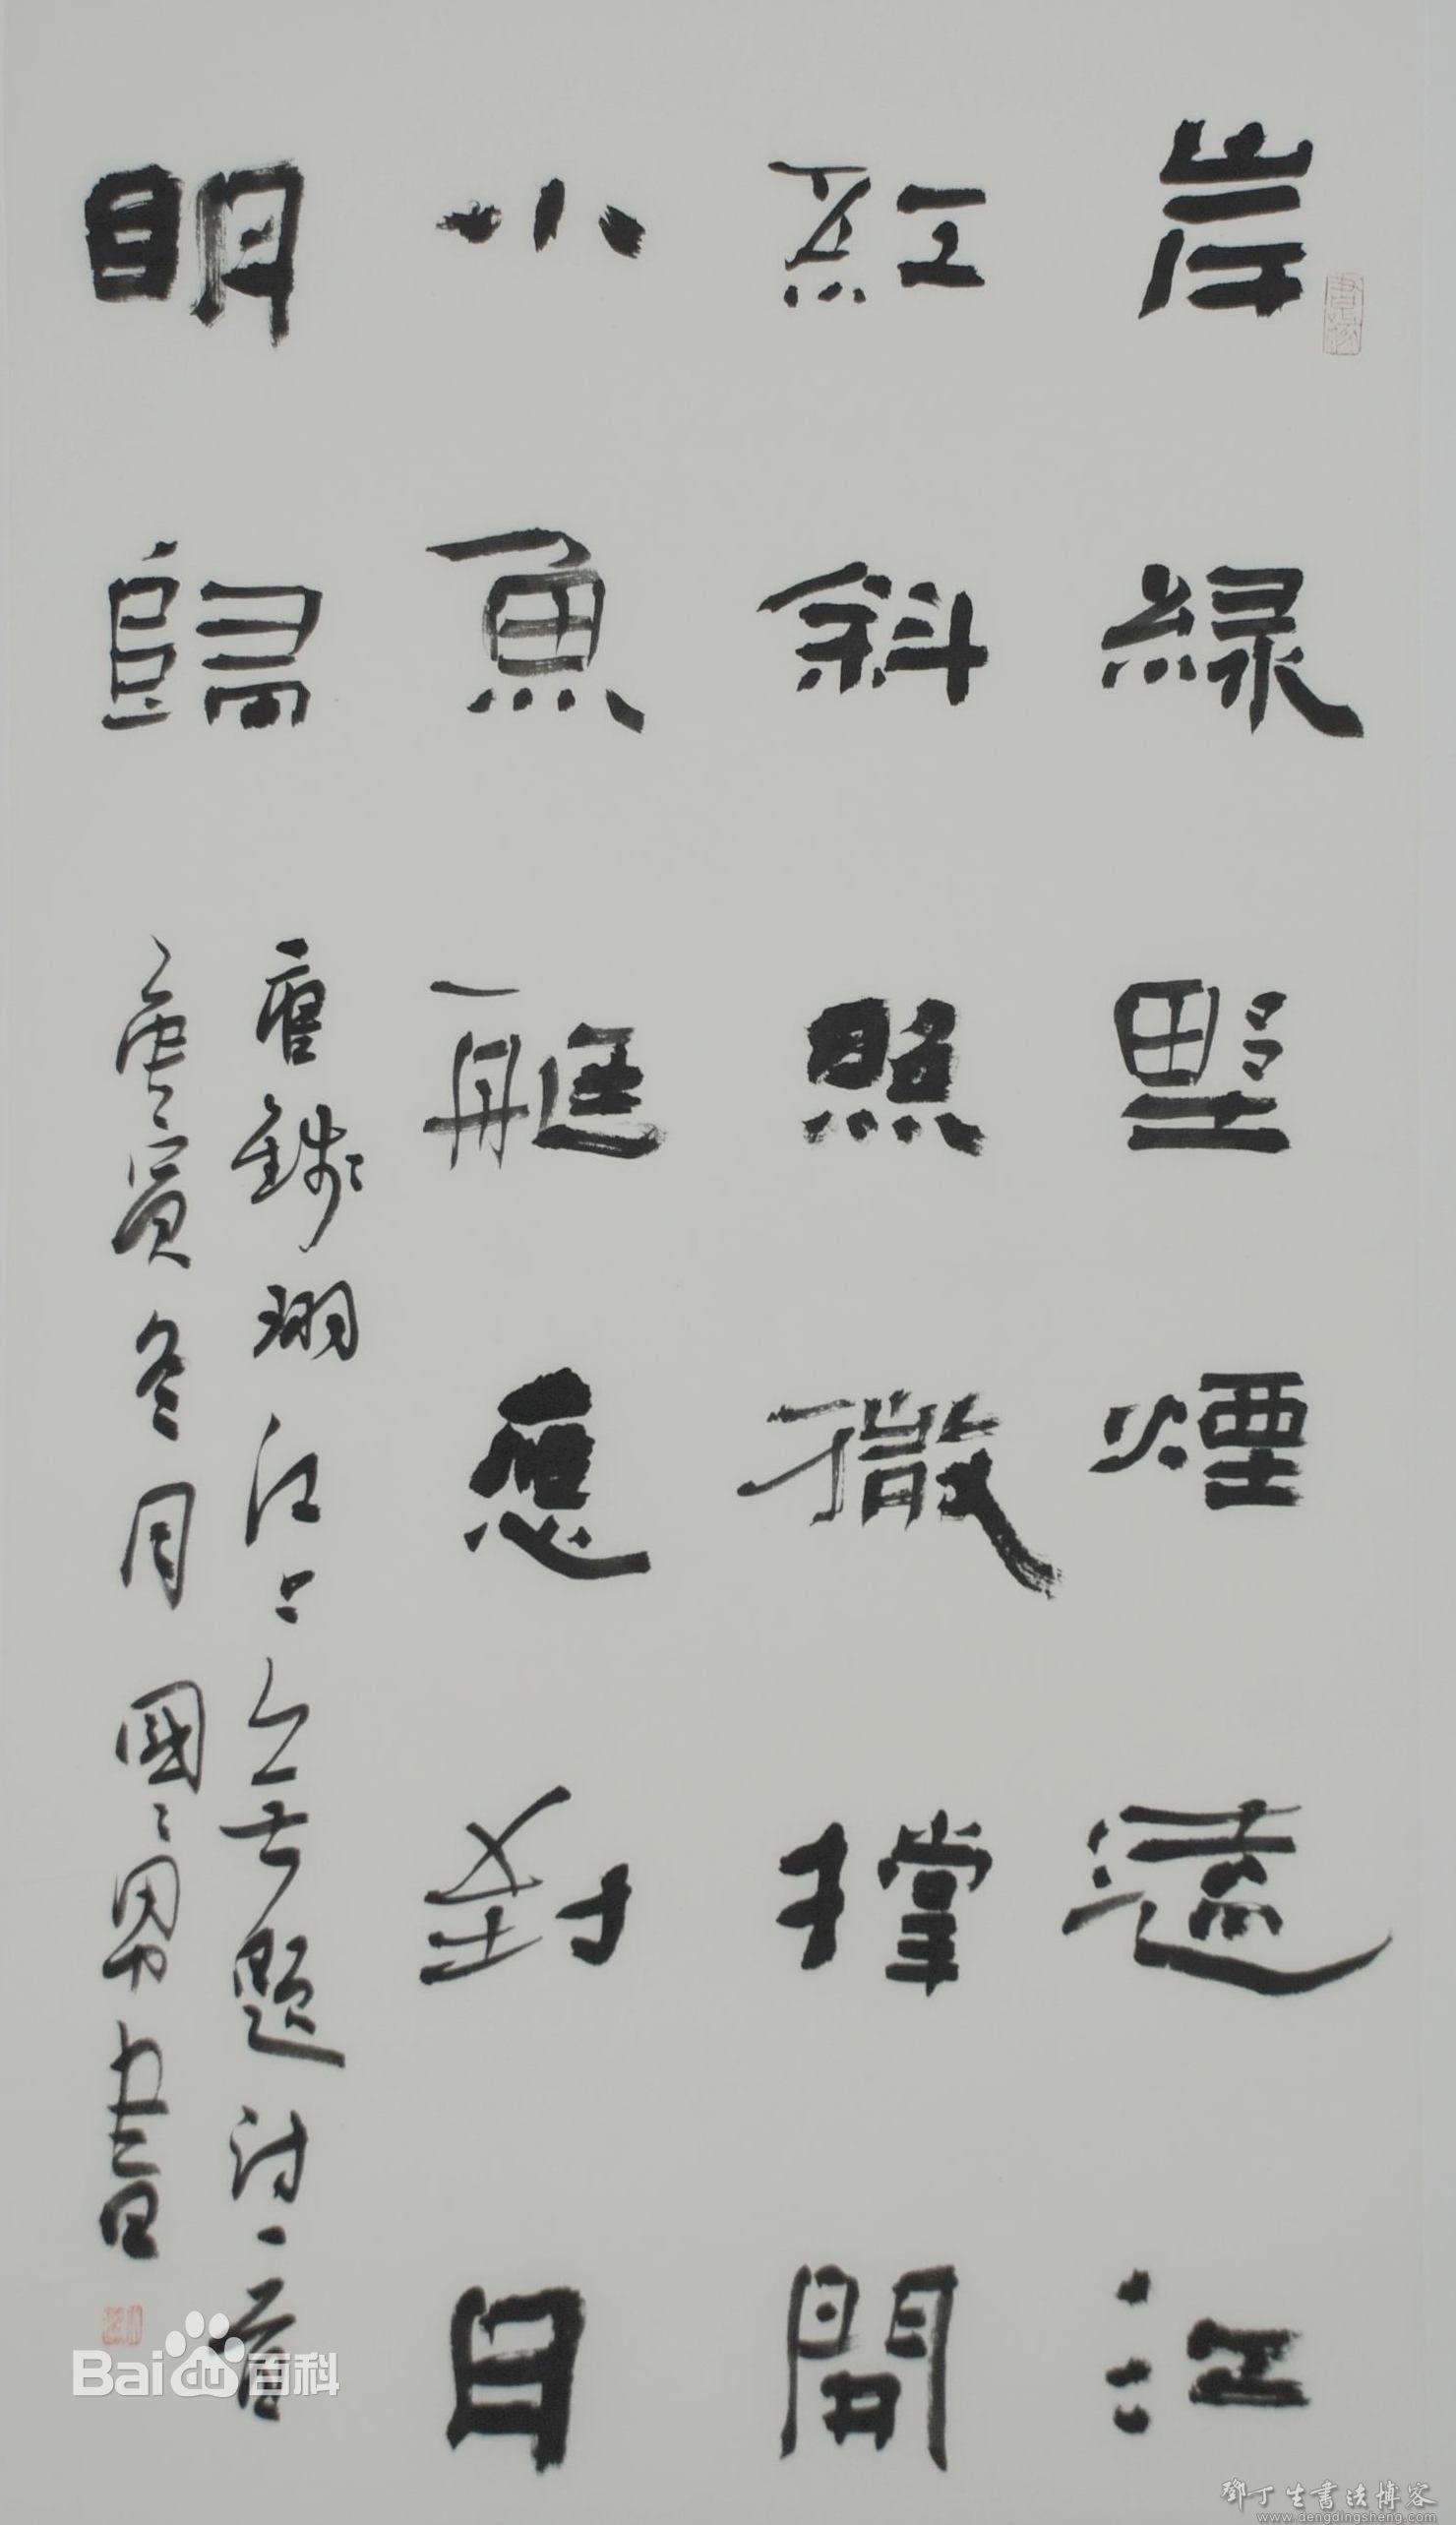 岸綠野煙遠江
紅斜照微撐開
小魚艇應到月
明歸
唐錢珝江上無題詩一首
庚寅冬月國書
Bai百科
鄧丁生書法博客
www.dengdingsheng.com